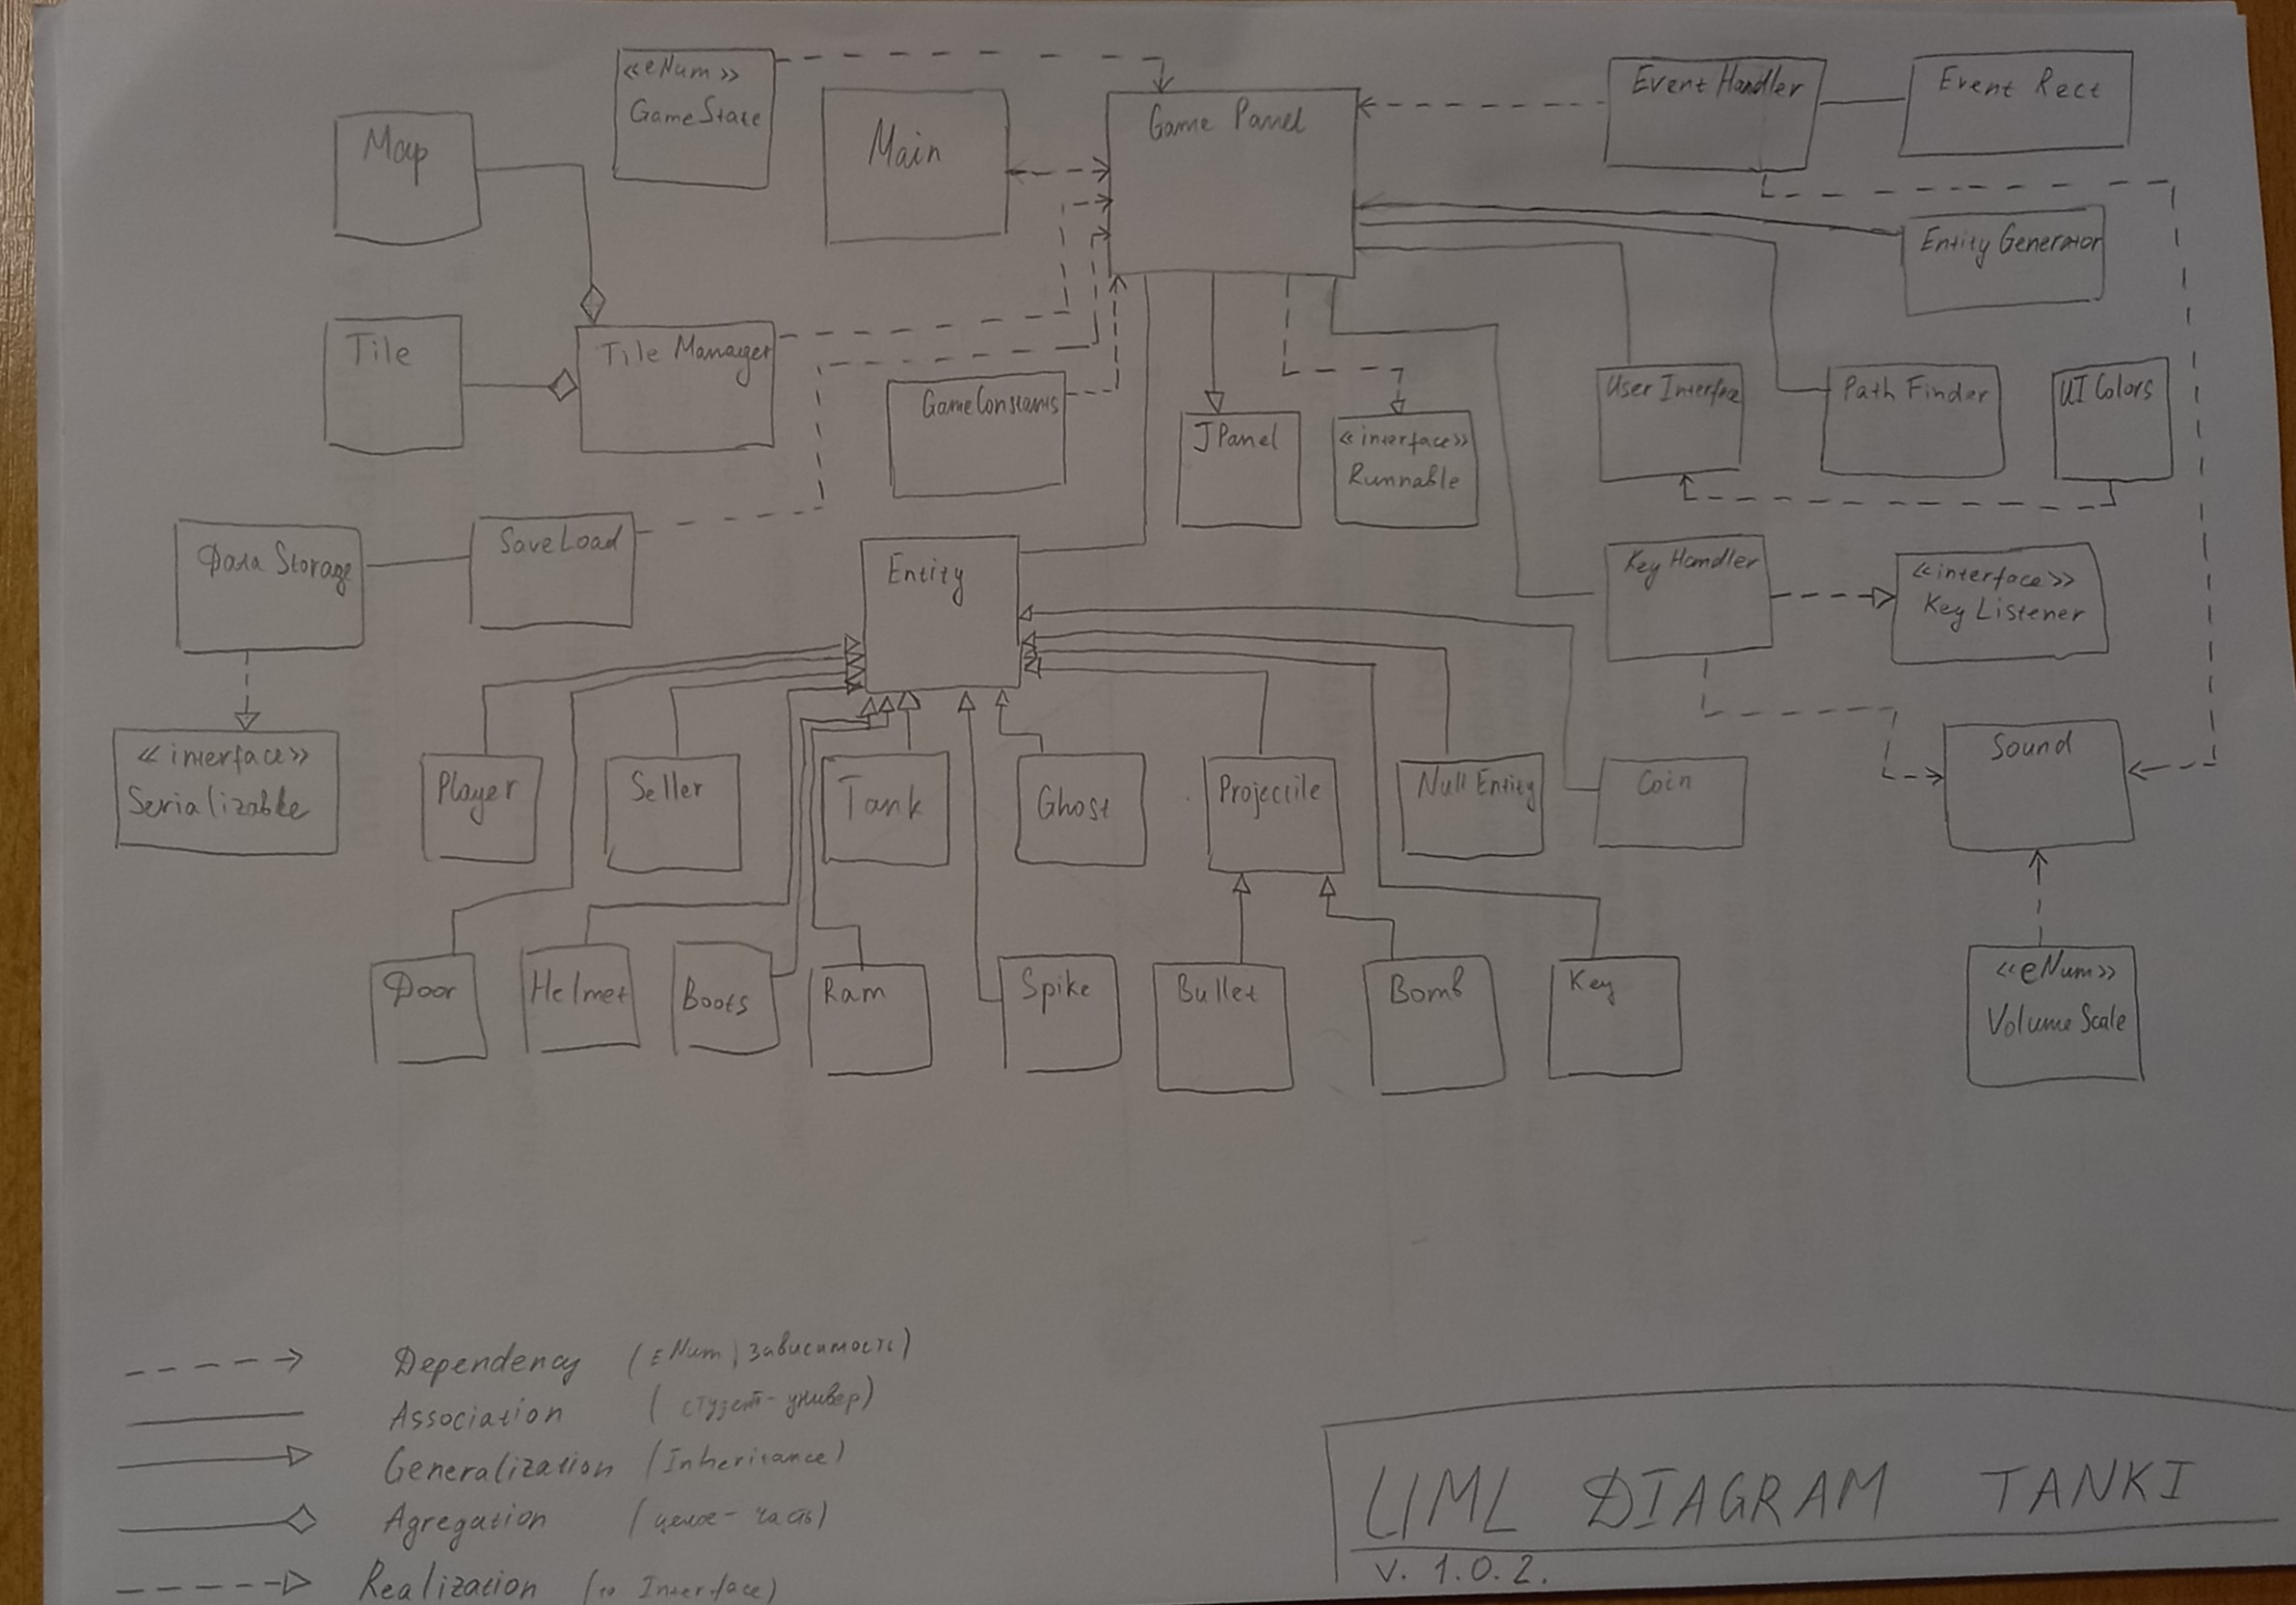 <<eNum>>
GameState
Map
Main
Game Panel
Event Handler
Event Rect
Entity Generator
Tile
Tile Manager
GameConstants
JPanel
<<interface>>
Runnable
User Interface
Path Finder
UI Colors
Data Storage
SaveLoad
Entity
Key Handler
<<interface>>
Key Listener
<<interface>>
Serializable
Player
Seller
Tank
Ghost
Projectile
Null Entity
Coin
Sound
Door
Helmet
Boots
Ram
Spike
Bullet
Bomb
Key
<<eNum>>
Volume Scale
Dependency (eNum, зависимость)
Association (студент-универ)
Generalization (Inheritance)
Agregation (целое-часть)
Realization (to Interface)
UML DIAGRAM TANKI
v. 1.0.2.